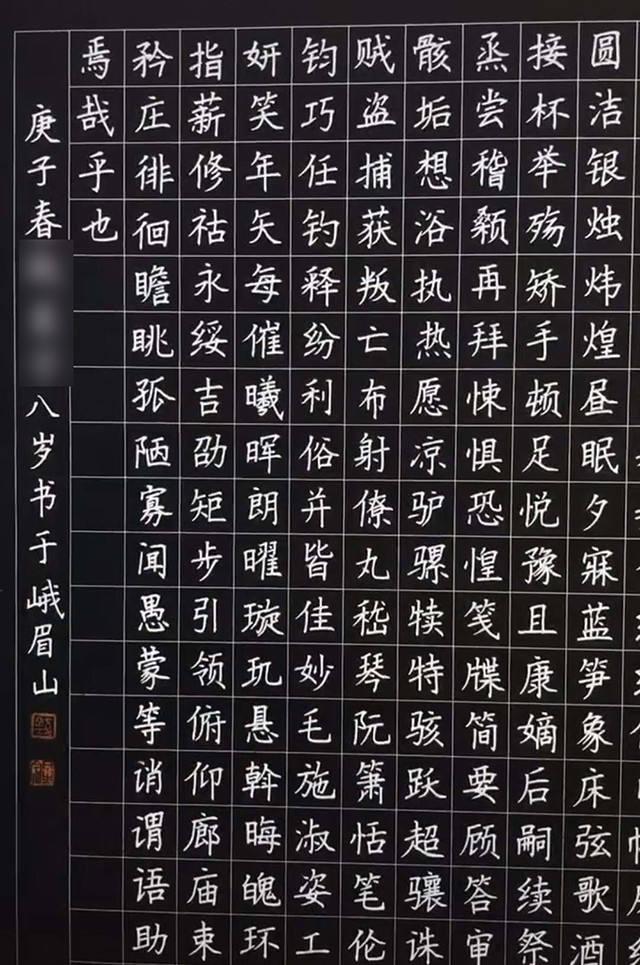 圆洁银烛炜煌昼眠夕寐蓝笋象床弦歌酒
接杯举殇矫手顿足悦豫且康嫡后嗣续祭
烝尝稽颡再拜悚惧恐惶笺牒简要顾答审
骸垢想浴执热愿凉驴骡犊特骇跃超骧诛
贼盗捕获叛亡布射僚丸嵇琴阮箫恬笔伦
钧巧任钓释纷利俗并皆佳妙毛施淑姿工
妍笑年矢每催曦晖朗曜璇玑悬斡晦魄环
指薪修祜永绥吉劭矩步引领俯仰廊庙束
矜庄徘徊瞻眺孤陋寡闻愚蒙等诮谓语助
焉哉乎也
庚子春 八岁书于峨眉山